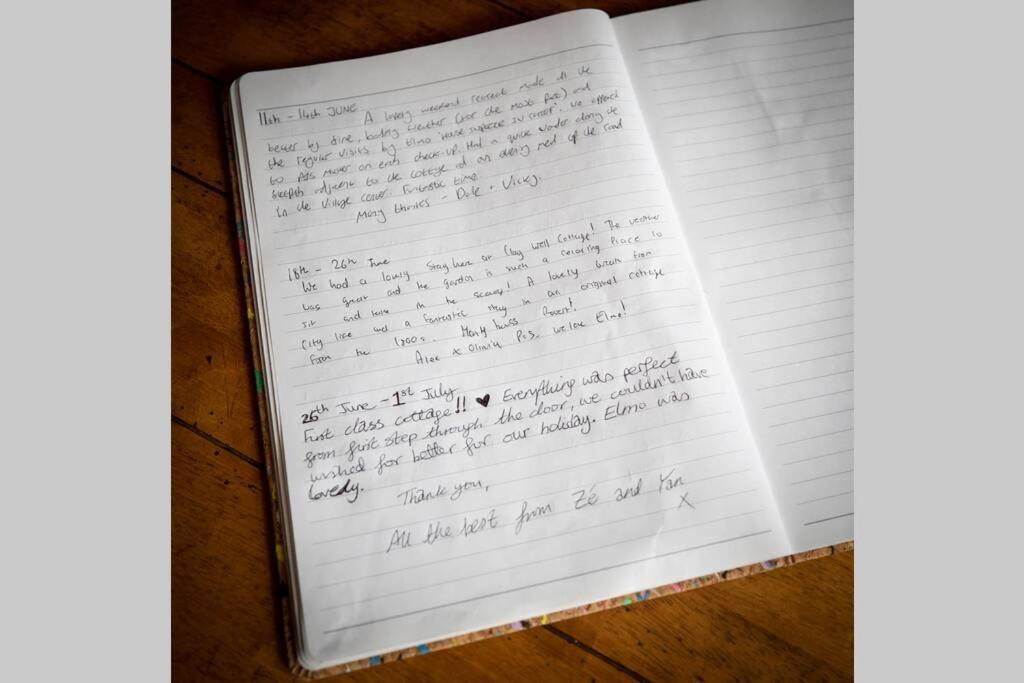 11th - 14th JUNE A lovely weekend retreat made all the
better by fine, weather (for the most part) and
the regular visits by Elmo 'House in'. We offered
to pass muster on each check-up. Had a quick wander along the
adjacent to the cottage and an evening meal up the road
in the village. Fantastic time.
Many thanks - Dale + Vicky.
18th - 26th June
We had a lovely stay here at Clay Well Cottage! The weather
was great and the garden is such a relaxing place to
sit and take in the scenery! A lovely break from
City life and a fantastic stay in an original cottage
from the 1700s. Many thanks!
Alex x Olivia P.S. we love Elmo!
26th June - 1st July
First class cottage!! ♥ Everything was perfect
from first step through the door, we couldn't have
wished for better for our holiday. Elmo was
lovely.
Thank you,
All the best from Zé and Yan
X